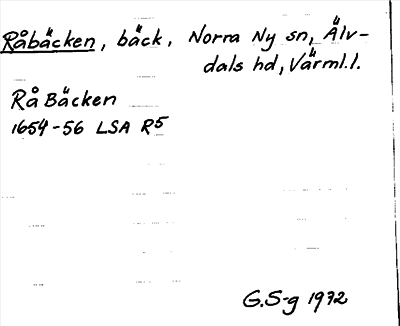 Råbäcken, bäck, Norra Ny sn, Älv-
dals hd, Värml.l.
Rå Bäcken
1654-56 LSA R5
G.S-g 1972